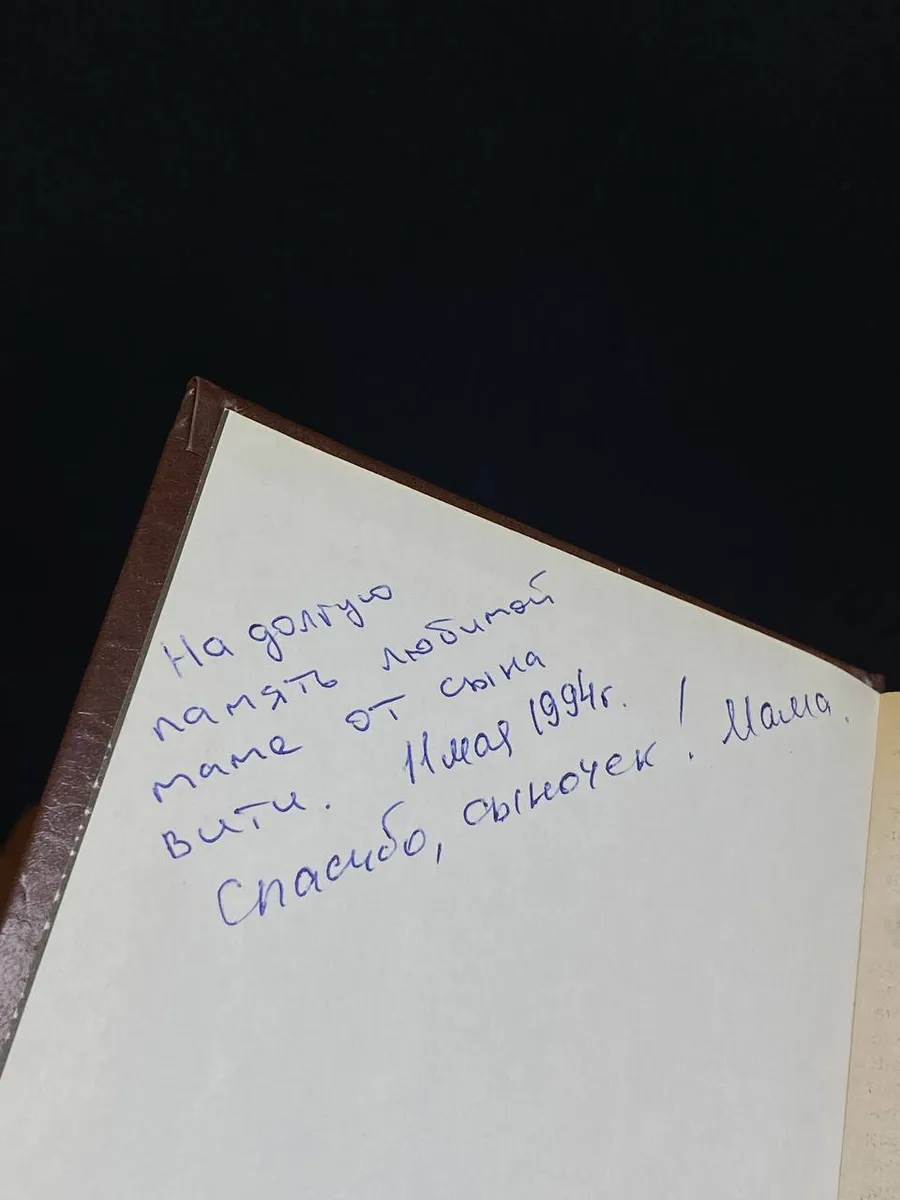 На долгую
память любимой
маме от сына
Вити. 11 мая 1994г.
Спасибо, сыночек! Мама.